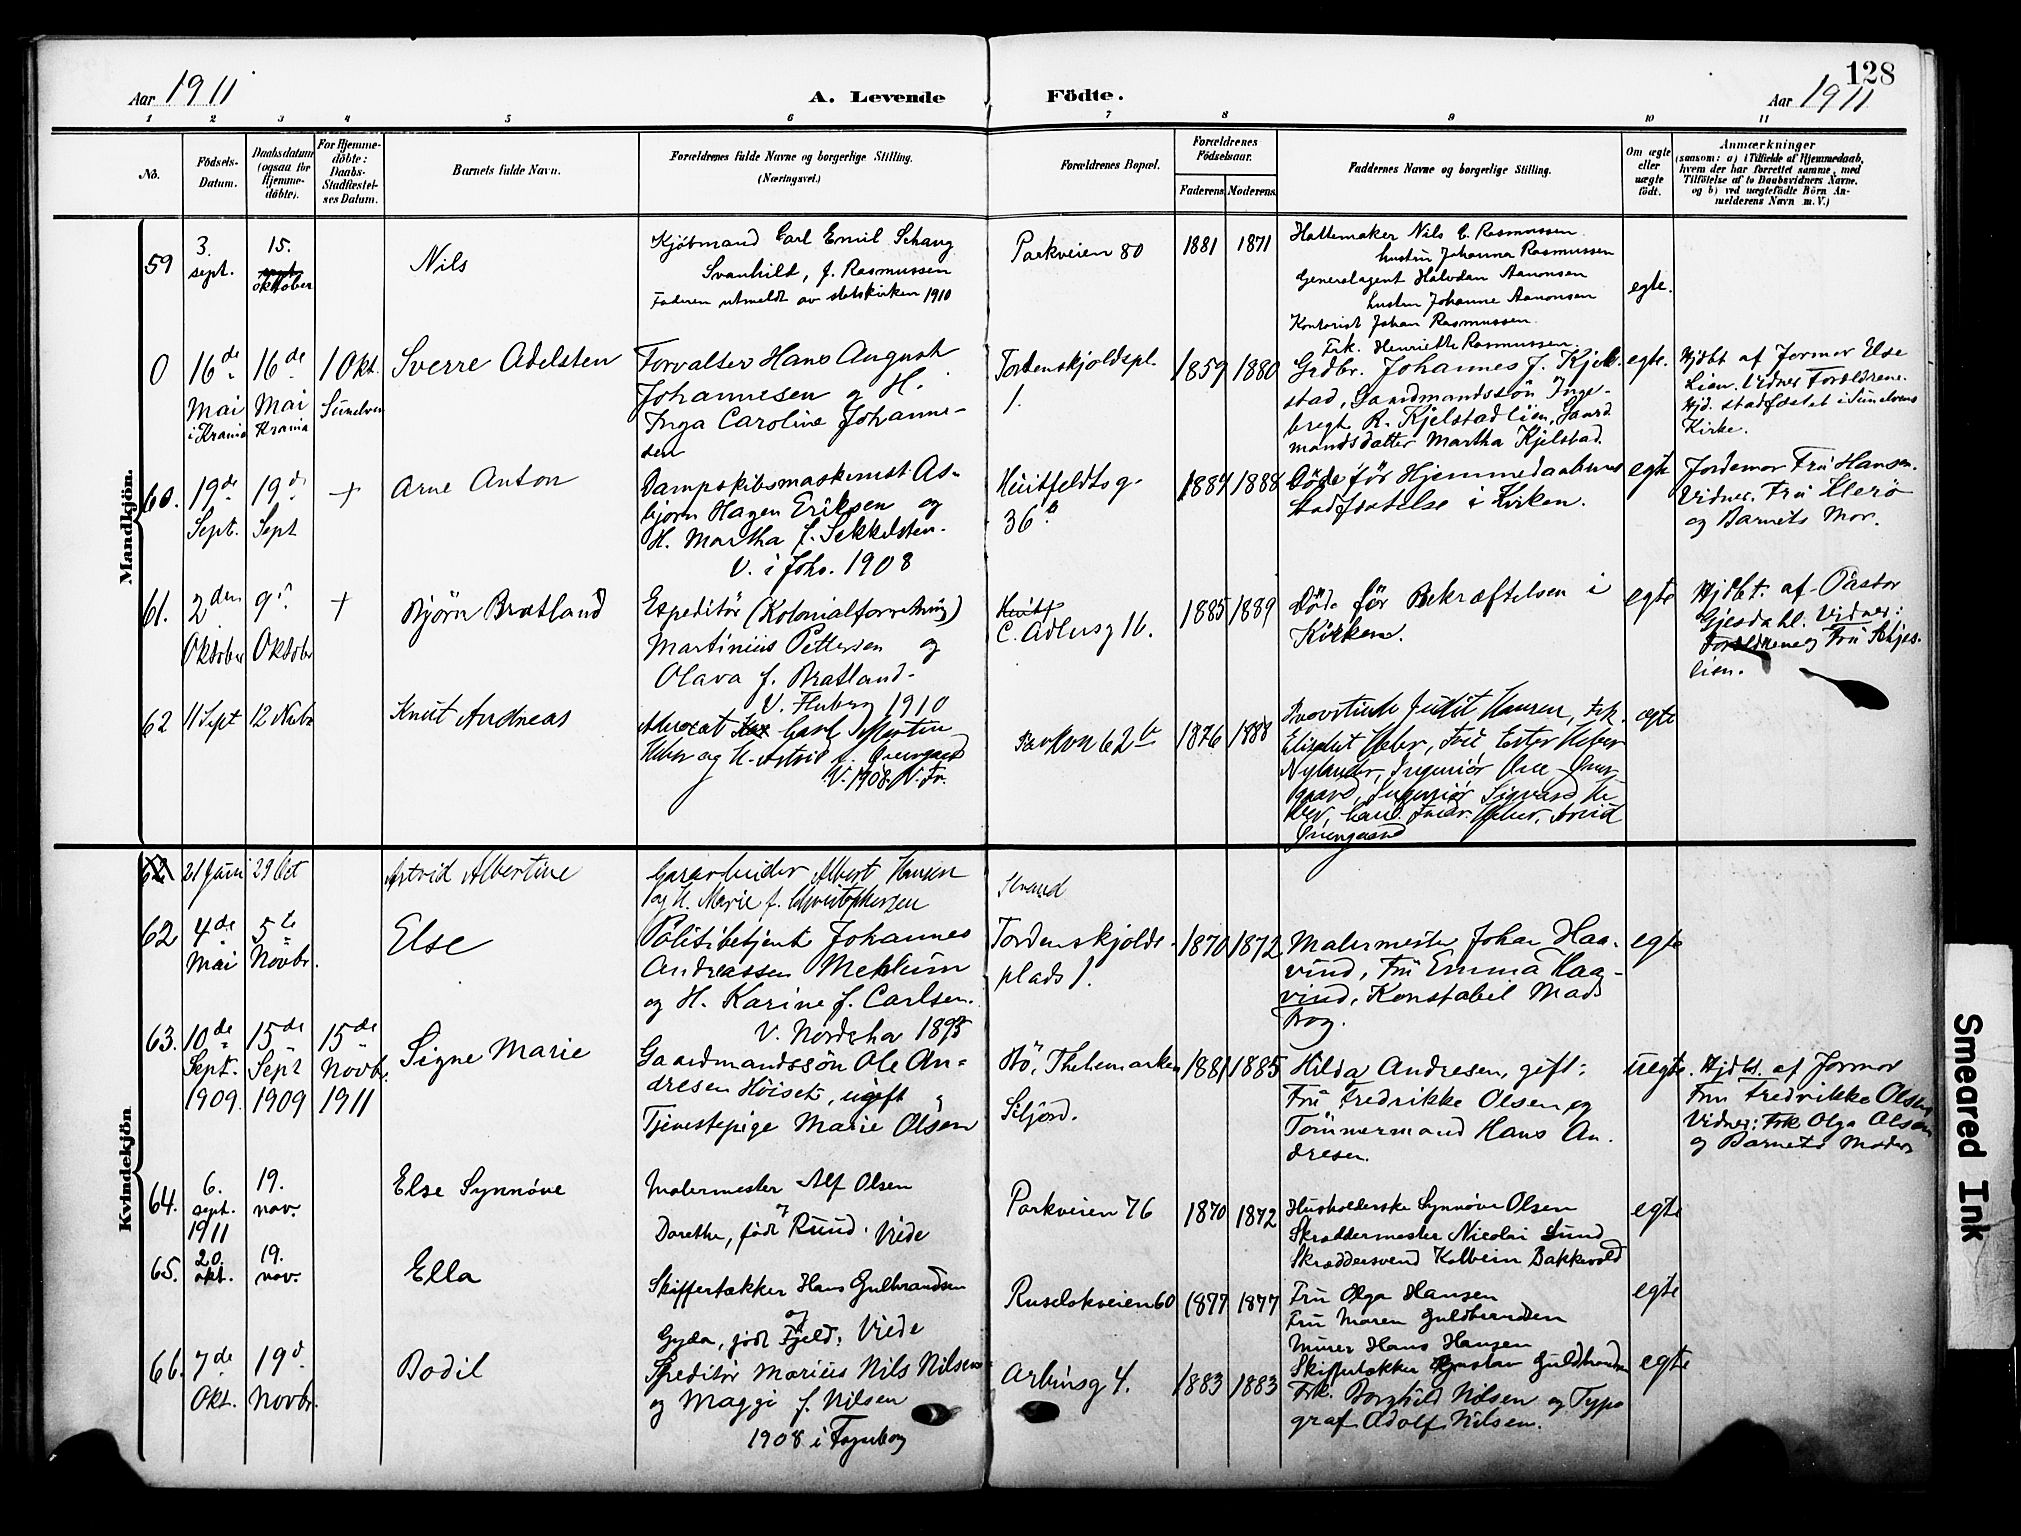 128
Aar 1911
A. Levende Födte.
Aar 1911
1 2 3 4 5 6 7 8 9 10 11
No.
Födsels-
Datum.
Daabsdatum
(ogsaa for
Hjemme-
döbte).
For Hjemme-
döbte:
Daabs-
Stadfæstel-
ses Datum.
Barnets fulde Navn.
Forældrenes fulde Navne og borgerlige Stilling.
(Næringsvei.)
Forældrenes Bopæl.
Forældrenes
Födselsaar.
Faderens. Moderens.
Faddernes Navne og borgerlige Stilling.
Om ægte
eller
uægte
födt.
Anmærkninger
(saasom: a) i Tilfælde af Hjemmedaab,
hvem der har forrettet samme, med
Tilföielse af to Daabsvidners Navne,
og b) ved uægtefödte Börn An-
melderens Navn m. V.)
Mandkjön.
59
3.
sept.
15.
oktober
Nils
Kjøbmand Carl Emil Schaug
Svanhild, f. Rasmussen
Faderen utmeldt av statskirken 1910
Parkveien 80
1881
1871
Hattemaker Nils C. Rasmussen
hustru Johanna Rasmussen
Generalagent Halvdan Aanonsen
hustru Johanne Aanonsen
Kontorist Johan Rasmussen.
Frk. Henriette Rasmussen.
egte.
0
16de
Mai
i Krania
16de
Mai
Krania
1 Okt.
Sunelven
Sverre Adelsten
Forvalter Hans August
Johannesen og H.
Inga Caroline Johanne-
sen
Tordenskjoldspl.
1.
1859
1880
Grdbr. Johannes J. Kjel-
stad, Gaardmandssön Inge-
bregt R. Kjelstadlien, Gaard
mandsdatter Martha Kjelstad.
egte.
Hjdbt af Jormor Else
Lien. Vidner Forældrene.
Hjd. stadfæstet i Sunelvens
Kirke.
60.
19de
Sept.
19de
Sept
+
Arne Anton
Dampskibsmaskinist As-
bjørn Hagen Eriksen og
H. Martha f. Sekkelsten.
V. i Johs. 1908
Huitfeldtsg.
36 B
1884
1888
Döde för Hjemmedaabens
stadfæstelse i Kirken.
egte
Jordemor Fru Hansen.
Vidner. Fru Herö
og Barnets Mor.
61.
2den
Oktober
9d.
Oktobr
+
Bjørn Bratland
Expeditör (Kolonialforretning)
Martinius Pettersen og
Olava f. Bratland.
V. 1910
Huitf
C. Adlersg 16.
1885
1889
Döde för Bekræftelsen i
Kirken.
egte
Hjdbt. af Pastor
Gjesdahl. Vidner:
Forældrene og Fru
lien.
62
11 Sept
12 Nvbr
Knut Andreas
Advocat Carl Martin
Heber og H. Astrid f. Qvergaard
V. 1908 V. Fr.
Parkvn 62 b
1876
1888
Provstinde Judit Hansen, Frk.
Elisabet Heber, Frk. Ester Heber
Nylander, Ingeniör
Ingeniör Sigvard He
ber, Cand. Fredr. Heber, Astrid
egte
Kvindekjön
62
21 Juni
29 Oct
Astrid Albertine
Gasarbeider Albert Hansen
og H. Marie f. Christophersen
Strand
62
4de
Mai
5te
Novbr.
Else
Politibetjent Johannes
Andreassen Mehlum
og H. Karine f. Carlsen.
V. Nordstra 1895
Tordenskjolds-
plads 1.
1870
1872
Malermester Johan Haa-
vind, Fru Emma Haa-
vind, Konstabel Mads
egte
63.
10de
Sept.
1909
15de
Sept
1909
15de
Novbr.
1911
Signe Marie
Gaardmandssön Ole An-
dresen Höiset, ugift og
Tjenestepige Marie Olsen
Bö, Thelemarken
Siljord.
1881
1885
Hilda Andresen, gift;
Fru Fredrikke Olsen og
Tömmermand Hans An-
dresen.
uegte.
Hjdbt. af Jormor
Fru Fredrikke Olsen
Vidner: Frk Olga Olsen
og Barnets Moder
64.
6.
sept.
1911
19.
nov.
Else Synnöve
Malermester Alf Olsen
og
Dorethe, född Ruud. Viede
Parkveien 76
1870
1872
Husholderske Synnöve Olsen
Skræddermester Nicolai Lund
Skræddersvend Kolbein Bakkevold
egte
65.
20.
okt.
19.
nov.
Ella
Skiffertækker Hans Gulbrandsen
og
Gyda, född Fjeld. Viede
Ruselökveien 60
1877
1877
Fru Olga Hansen
Fru Maren Guldbrandsen
Murer Hans Hansen
Skiffertækker Gustav Guldbrandsen
egte
66.
7de
Okt.
19d
Novbr.
Bodil
Speditör Marius Nils Nilsen
og Maggi f. Nilsen
1908 i Fagerborg
Arbinsg 4.
1883
1883
Frk. Borghild Nilsen og Typo
graf Adolf Nilsen.
egte
Smeared Ink